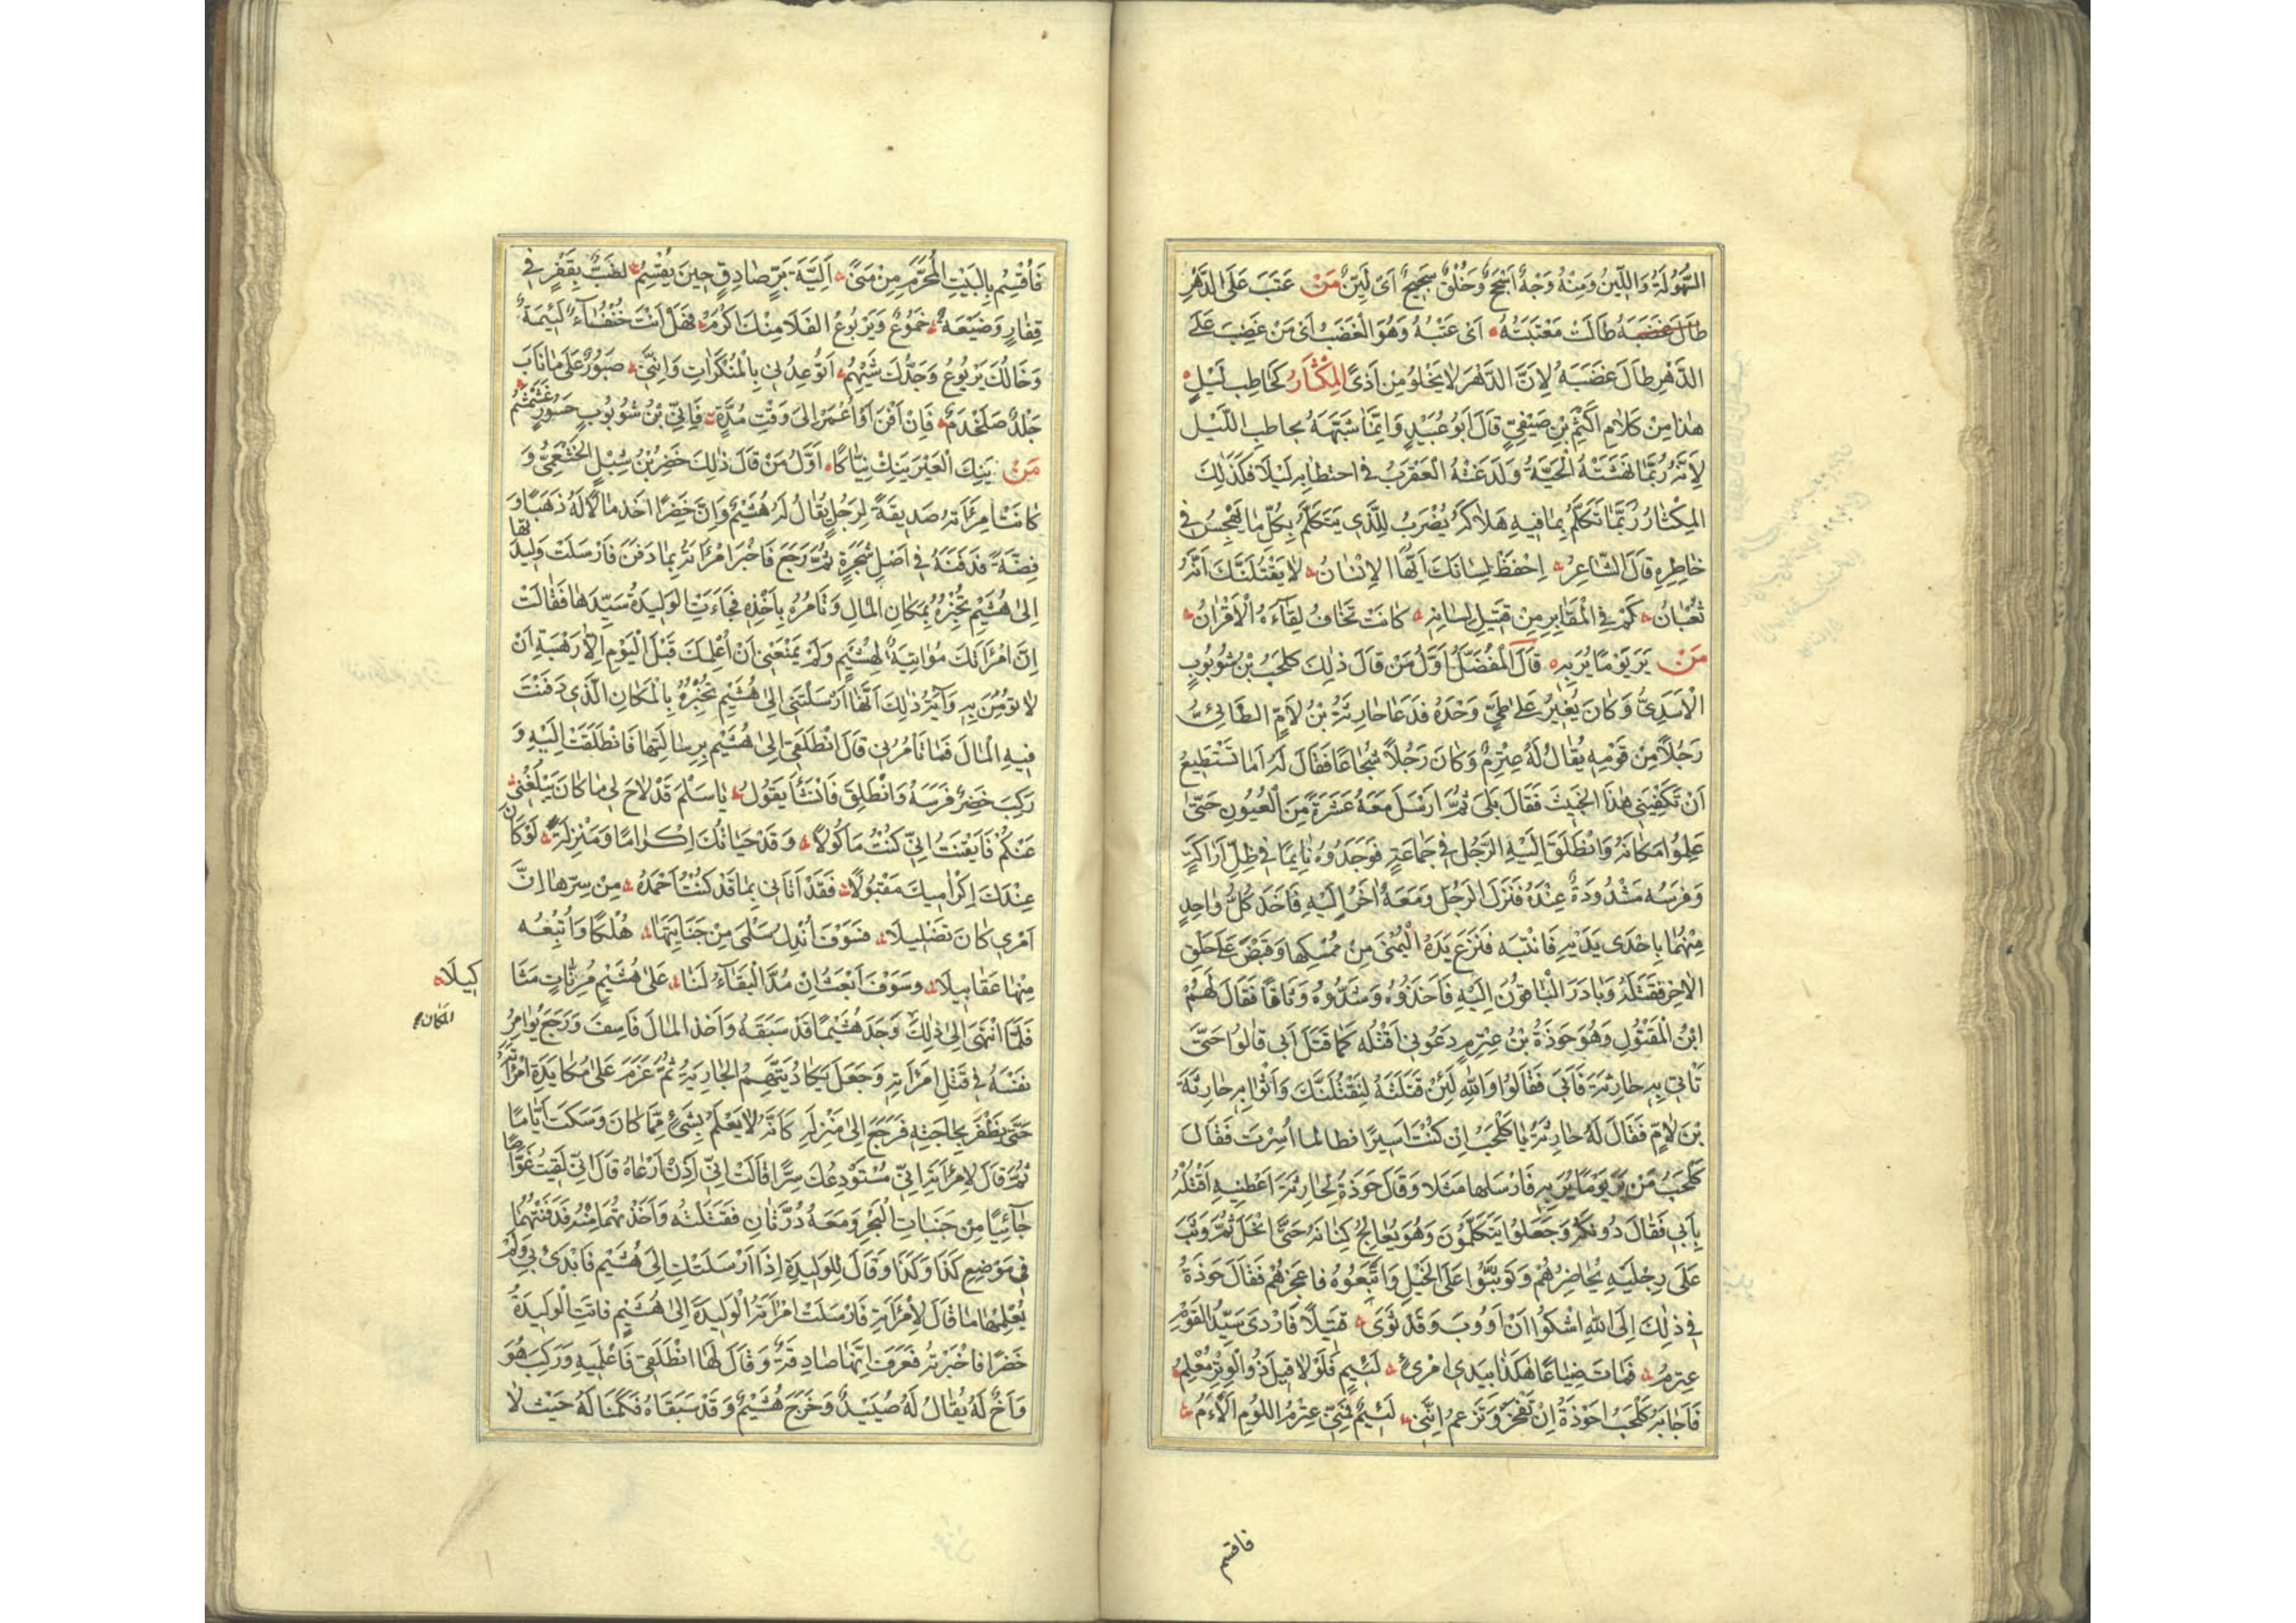 السُّهُولَةُ وَاللِّينُ وَمِنْهُ وَجْهٌ اَسْجَحُ وَخُلْقٌ سَجِيحٌ اَىْ لَيِّنٌ مَنْ عَتَبَ عَلَى الدَّهْرِ
طَالَ غَضَبَهُ طَالَتْ مَعْتَبَتُهُ اَىْ عَتْبُهُ وَهُوَ الْغَضَبُ اَىْ مَنْ غَضِبَ عَلَى
الدَّهْرِ طَالَ غَضَبَهُ لِاَنَّ الدَّهْرَ لَا يَخْلُو مِنْ اَذًى الْمِكْثَارُ كَحَاطِبِ لَيْلٍ
هٰذَا مِنْ كَلَامِ اَكْثَمَ بْنِ صَيْفِيٍّ قَالَ اَبُو عُبَيْدٍ وَاِنَّمَا شَبَّهَهُ بِحَاطِبِ اللَّيْلِ
لِاَنَّهُ رُبَّمَا نَهَشَتْهُ الْحَيَّةُ وَلَدَغَتْهُ الْعَقْرَبُ فِى احْتِطَابِهِ لَيْلًا فَكَذٰلِكَ
الْمِكْثَارُ رُبَّمَا تَكَلَّمُ بِمَا فِيهِ هَلَاكَهُ يُضْرَبُ لِلَّذِى يَتَكَلَّمُ بِكُلِّ مَا يَهْجِسُ فِى
خَاطِرِهِ قَالَ الشَّاعِرُ اِحْفَظْ لِسَانَكَ اَيُّهَا الْاِنْسَانُ لَا يَقْتُلَنَّكَ اَنَّهُ
ثُعْبَانُ كَمْ فِى الْمَقَابِرِ مِنْ قَتِيلِ لِسَانِهِ كَانَتْ تَخَافُ لِقَآءَهُ الْاَقْرَانُ
مَنْ يَرَ يَوْمًا يُرَ بِهِ قَالَ الْمُفَضَّلُ اَوَّلُ مَنْ قَالَ ذٰلِكَ كَلْحَبُ بْنُ شُؤْبُوبٍ
الْاَسَدِىُّ وَكَانَ يُغِيرُ عَلَى طَيٍّ وَحْدَهُ فَدَعَا حَارِثَةُ بْنُ لَاْمٍ الطَّائِىُّ
رَجُلًا مِنْ قَوْمِهِ يُقَالُ لَهُ عِتْرِمٌ وَكَانَ رَجُلًا شُجَاعًا فَقَالَ لَهُ اَمَا تَسْتَطِيعُ
اَنْ تَكْفِيَنِى هٰذَا الْخَبِيثَ فَقَالَ بَلَى ثُمَّ ارْسَلَ مَعَهُ عَشَرَةً مِنَ الْعُيُونِ حَتّٰى
عَلِمُوا مَكَانَهُ وَانْطَلَقَ اِلَيْهِ الرَّجُلُ فِى جَمَاعَةٍ فَوَجَدُوهُ نَايِمًا فِى ظِلِّ اَرَاكَةٍ
وَفَرَسُهُ مَشْدُودَةٌ عِنْدَهُ فَنَزَلَ الرَّجُلُ وَمَعَهُ اٰخَرُ اِلَيْهِ فَاَخَذَ كُلُّ وَاحِدٍ
مِنْهُمَا بِاِحْدَى يَدَيْهِ فَانْتَبَهَ فَنَزَعَ يَدَهُ الْيُمْنَى مِنْ مُمْسِكِهَا وَقَبَضَ عَلَى حَلْقِ
الْاٰخَرِ فَقَتَلَهُ وَبَادَرَ الْبَاقُونَ اِلَيْهِ فَاَخَذُوهُ وَشَدُّوهُ وَثَاقًا فَقَالَ لَهُمْ
ابْنُ الْمَقْتُولِ وَهُوَ حَوْذَةُ بْنُ عِتْرِمٍ دَعُونِى اَقْتُلْهُ كَمَا قَتَلَ اَبِى قَالُوا حَتّٰى
نَاْتِىَ بِهِ حَارِثَةَ فَاَبَى فَقَالُوا وَاللّٰهِ لَئِنْ قَتَلْتَهُ لَنَقْتُلَنَّكَ وَاَتَوْا بِهِ حَارِثَةَ
بْنَ لَاْمٍ فَقَالَ لَهُ حَارِثَةُ يَا كَلْحَبُ اِنْ كُنْتَ اَسِيرًا فَطَالَمَا اَسَرْتَ فَقَالَ
كَلْحَبُ مَنْ يَرَ يَوْمًا يُرَ بِهِ فَارْسَلَهَا مَثَلًا وَقَالَ حَوْذَةُ لِحَارِثَةَ اَعْطِنِيهِ اَقْتُلْهُ
بِاَبِى فَقَالَ دُونَكَهُ وَجَعَلُوا يَتَكَلَّمُونَ وَهُوَ يُعَالِجُ كِتَافَهُ حَتّٰى انْحَلَّ ثُمَّ وَثَبَ
عَلَى رِجْلَيْهِ يُحَاضِرُهُمْ وَتَوَثَّبُوا عَلَى الْخَيْلِ وَاتَّبَعُوهُ فَاَعْجَزَهُمْ فَقَالَ حَوْذَةُ
فِى ذٰلِكَ اِلَى اللّٰهِ اَشْكُوا اَنْ اَؤُوبَ وَقَدْ ثَوَى قَتِيلًا فَاَرْدَى سَيِّدُ الْقَوْمِ
عِتْرِمُ فَمَاتَ ضِيَاعًا هٰكَذَا بِيَدِى امْرِئٍ لَئِيمٍ فَلَوْلَا قِيلَ ذُو الْوِتْرِ مُعْلِمُ
فَاَجَابَهُ كَلْحَبُ اَحَوْذَةُ اِنْ تَفْخَرْ وَتَزْعَمُ اِنَّنِى لَئِيمٌ فَمِنِّى عِتْرِمُ اللُّؤْمِ اَلْاَمُ
فاقسم
فَاُقْسِمُ بِالْبَيْتِ الْمُحَرَّمِ مِنْ مَنًى اَلِيَّةَ بَرٍّ صَادِقٍ حِينَ يُقْسِمُ لَضَبٌّ بِقَفْرٍ فِى
قِفَارٍ وَضَيْعَةٌ خَمُوعٌ وَيَرْبُوعُ الْفَلَا مِنْكَ اَكْرَمُ فَهَلْ اَنْتَ خُنْفُسَآءُ لَئِيمَةٌ
وَخَالُكَ يَرْبُوعٌ وَجَدُّكَ شَيْهَمُ اَتُوعِدُنِى بِالْمُنْكَرَاتِ وَاِنَّنِى صَبُورٌ عَلَى مَا نَابَ
جَلْدٌ صَلَخْدَمُ فَاِنْ اَفْنَ اَوْ اُعْمَرْ اِلَى وَقْتِ مُدَّةٍ فَاِنِّى بْنُ شُؤْبُوبٍ جَسُورٌ غَشَمْشَمُ
مَنْ يَنِكِ الْعَيْرَ يَنِكْ نِيَّاكًا اَوَّلُ مَنْ قَالَ ذٰلِكَ خَضِرُ بْنُ شِبْلٍ الْخَثْعَمِىُّ وَ
كَانَتْ امْرَاَتُهُ صَدِيقَةً لِرَجُلٍ يُقَالُ لَهُ هُشَيْمٌ وَاِنَّ خَضِرًا اَخَذَ مَالًا لَهُ ذَهَبًا وَ
فِضَّةً فَدَفَنَهُ فِى اَصْلِ شَجَرَةٍ ثُمَّ رَجَعَ فَاَخْبَرَ امْرَاَتَهُ بِمَا دَفَنَ فَاَرْسَلَتْ وَلِيدَتَهَا
اِلَى هُشَيْمٍ تُخْبِرُهُ بِمَكَانِ الْمَالِ وَتَامُرُهُ بِاَخْذِهِ فَجَاءَتِ الْوَلِيدَةُ سَيِّدَهَا فَقَالَتْ
اِنَّ امْرَاَتَكَ مُوَاتِيَةٌ لِهُشَيْمٍ وَلَمْ يَمْنَعْنِى اَنْ اُعْلِمَكَ قَبْلَ الْيَوْمِ اِلَّا رَهْبَةِ اَنْ
لَا تُؤْمِنَ بِهِ وَاٰيَةُ ذٰلِكَ اَنَّهَا اَرْسَلَتْنِى اِلَى هُشَيْمٍ تُخْبِرُهُ بِالْمَكَانِ الَّذِى دَفَنْتَ
فِيهِ الْمَالَ فَمَا تَاْمُرُنِى قَالَ انْطَلِقِى اِلَى هُشَيْمٍ بِرِسَالَتِهَا فَانْطَلَقَتْ اِلَيْهِ وَ
رَكِبَ خَضِرٌ فَرَسَهُ وَانْطَلِقَ فَانْشَاَ يَقُولُ يَا سَلْمَ قَدْ لَاحَ لِى مَا كَانَ يَبْلُغُنِى
عَنْكُمْ فَاَيْقَنْتُ اِنِّى كُنْتُ مَاْكُولًا وَقَدْ حَبَاتُكِ اِكْرَامًا وَمَنْزِلَةً لَوْ كَانَ
عِنْدَكِ اِكْرَامِيكِ مَقْبُولًا فَقَدْ اَتَانِى بِمَا قَدْ كُنْتُ اَحْمَدُهُ مِنْ سِرِّهَا اِنَّ
اَمْرِى كَانَ تَضْلِيلًا فَسَوْفَ اُبْدِلُ سَلْمَى مِنْ جِنَايَتِهَا هُلْكًا وَاُتْبِعُهُ
مِنْهَا عَقَابِيلَا وَسَوْفَ اَبْعَثُ اِنْ مُدَّ الْبَقَآءُ لَنَا عَلَى هُشَيْمٍ مُرِنَّاتٍ مَثَا
كيلا
فَلَمَّا انْتَهَى اِلَى ذٰلِكَ وَجَدَ هُشَيْمًا قَدْ سَبَقَهُ وَاَخَذَ الْمَالَ فَاَسِفَ وَرَجَعَ يُؤَامِرُ
المكان
نَفْسَهُ فِى قَتْلِ امْرَاَتِهِ وَجَعَلَ يَكَادُ يَتَّهِمُ الْجَارِيَةَ ثُمَّ عَزَمَ عَلَى مُكَايَدَةِ امْرَاَتِهِ
حَتّٰى يَظْفَرَ بِحَاجَتِهِ فَرَجَعَ اِلَى مَنْزِلِهِ كَاَنَّهُ لَا يَعْلَمُ بِشَىْءٍ مِمَّا كَانَ وَسَكَتَ اَيَّامًا
ثُمَّ قَالَ لِامْرَاَتِهِ اِنِّى مُسْتَوْدِعُكِ سِرًّا قَالَتْ اِنِّى اِذَنْ اَرْعَاهُ قَالَ اِنِّى لَقِيتُ غَوَّاصًا
جَآئِيًا مِنْ جَنَبَاتِ الْبَحْرِ وَمَعَهُ دُرَّتَانِ فَقَتَلْتُهُ وَاَخَذْتُهُمَا مِنْهُ فَدَفَنْتُهُمَا
فِى مَوْضِعِ كَذَا وَكَذَا وَقَالَ لِلْوَلِيدَةِ اِذَا اَرْسَلَتْكِ اِلَى هُشَيْمٍ فَابْدَئِى بِى وَلَمْ
يُعْلِمْهَا مَا قَالَ لِامْرَاَتِهِ فَارْسَلَتْ امْرَاَتُهُ الْوَلِيدَةَ اِلَى هُشَيْمٍ فَاَتَتِ الْوَلِيدَةُ
خَضِرًا فَاَخْبَرَتْهُ فَعَرَفَ اِنَّهَا صَادِقَةٌ وَقَالَ لَهَا انْطَلِقِى فَاعْلِمِيهِ وَرَكِبَ هُوَ
وَاَخٌ لَهُ يُقَالُ لَهُ صُبَيْدٌ وَخَرَجَ هُشَيْمٌ وَقَدْ سَبَقَاهُ فَكَمَنَا لَهُ حَيْثُ لَا